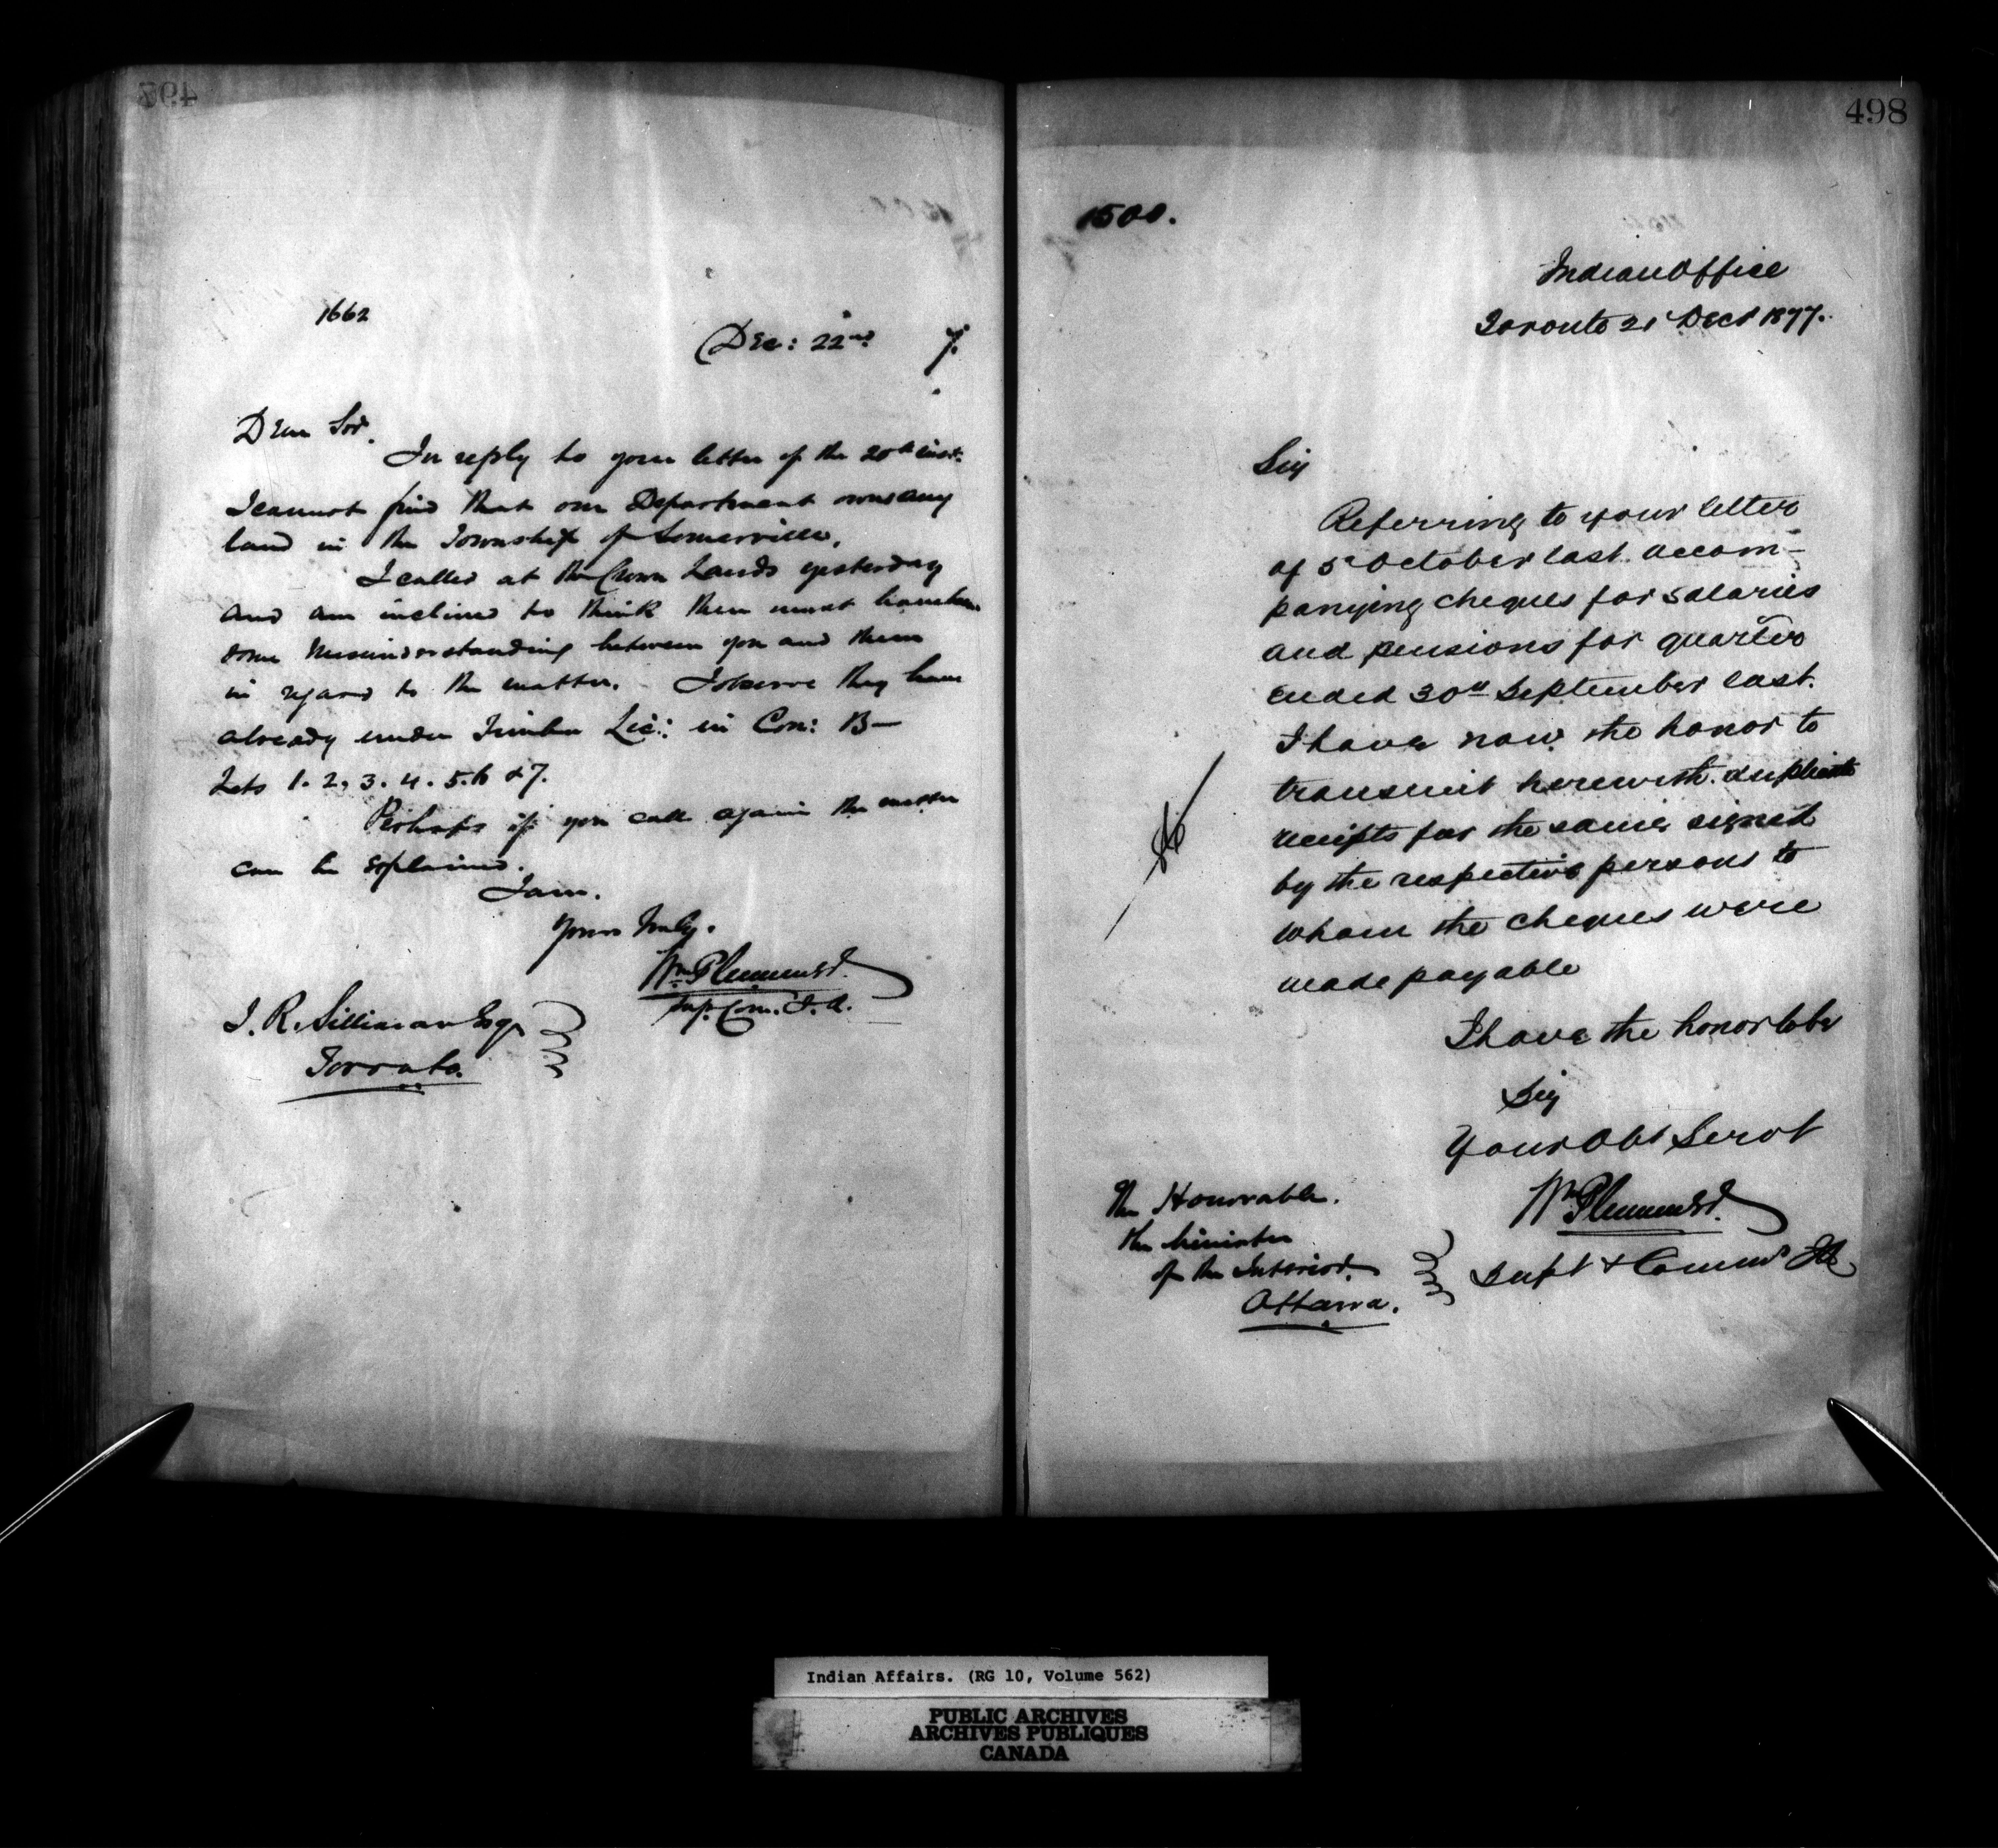 497
1662
Dec: 22nd 7.
Dear Sir.
In reply to your letter of the 20th inst.
I cannot find that our Department owns any
land in the Township of Somerville.
I called at the Crown Lands yesterday
and am inclined to think there must have been
some Misunderstanding between you and them
in regard to the matter. I observe they have
already under Timber Lic: in Con: B—
Lots 1. 2, 3. 4. 5. 6 & 7.
Perhaps if you call again the matter
can be explained.
I am.
Yours truly.
Wm Plummer
Sup. Com. I. A.
J. R. Silliman Esqr
Toronto.
498
1500.
Indian Office
Toronto 21 Decr 1877.
Sir
Referring to your letter
of 5th October last accom-
panying cheques for salaries
and pensions for quarter
ended 30th September last.
I have now the honor to
transmit herewith duplicate
receipts for the same signed
by the respective persons to
whom the cheques were
made payable
I have the honor to be
Sir
Your Obt Servt
Wm Plummer
Supt & Commr IA
The Honorable.
the Minister
of the Interior.
Ottawa.
Indian Affairs. (RG 10, Volume 562)
PUBLIC ARCHIVES
ARCHIVES PUBLIQUES
CANADA